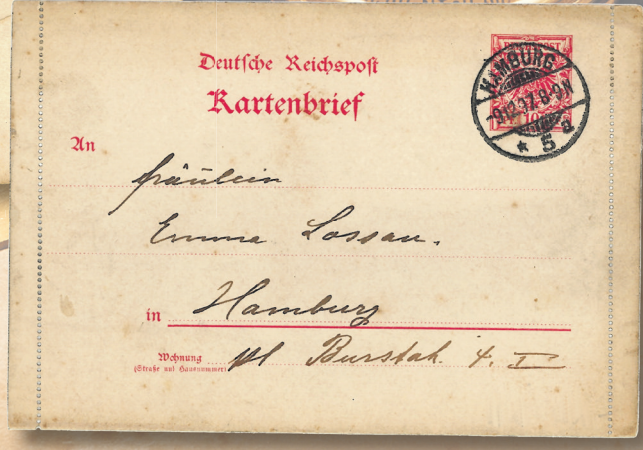 Deutsche Reichspost
Kartenbrief
HAMBURG
8-9N
* 5 a
An
Fräulein
Emma Lossau.
in Hamburg
Wohnung
(Straße und Hausnummer)
Burstah. 4. I